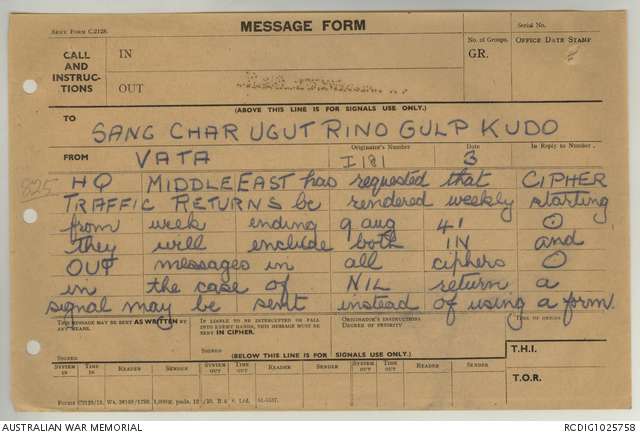 ARMY FORM C.2128.
MESSAGE FORM
Serial No.
CALL AND INSTRUCTIONS
IN
No. of Groups.
GR.
OFFICE DATE STAMP
OUT
(ABOVE THIS LINE IS FOR SIGNALS USE ONLY.)
TO
SANG CHAR UGUT RINO GULP KUDO
FROM
Originator's Number
Date
In Reply to Number.
VATA I 181 3
825
HQ MIDDLE EAST has requested that CIPHER
TRAFFIC RETURNS be rendered weekly starting
from week ending 9 aug 41 O
they will include both IN and
OUT messages in all ciphers O
in the case of NIL return a
signal may be sent instead of using a form.
THIS MESSAGE MAY BE SENT AS WRITTEN BY ANY MEANS.
IF LIABLE TO BE INTERCEPTED OR FALL INTO ENEMY HANDS, THIS MESSAGE MUST BE SENT IN CIPHER.
ORIGINATOR'S INSTRUCTIONS
DEGREE OF PRIORITY
TIME OF ORIGIN
SIGNED
SIGNED
(BELOW THIS LINE IS FOR SIGNALS USE ONLY.)
T.H.I.
SYSTEM IN
TIME IN
READER
SENDER
SYSTEM OUT
TIME OUT
READER
SENDER
SYSTEM OUT
TIME OUT
READER
SENDER
T.O.R.
AUSTRALIAN WAR MEMORIAL
RCDIG1025758